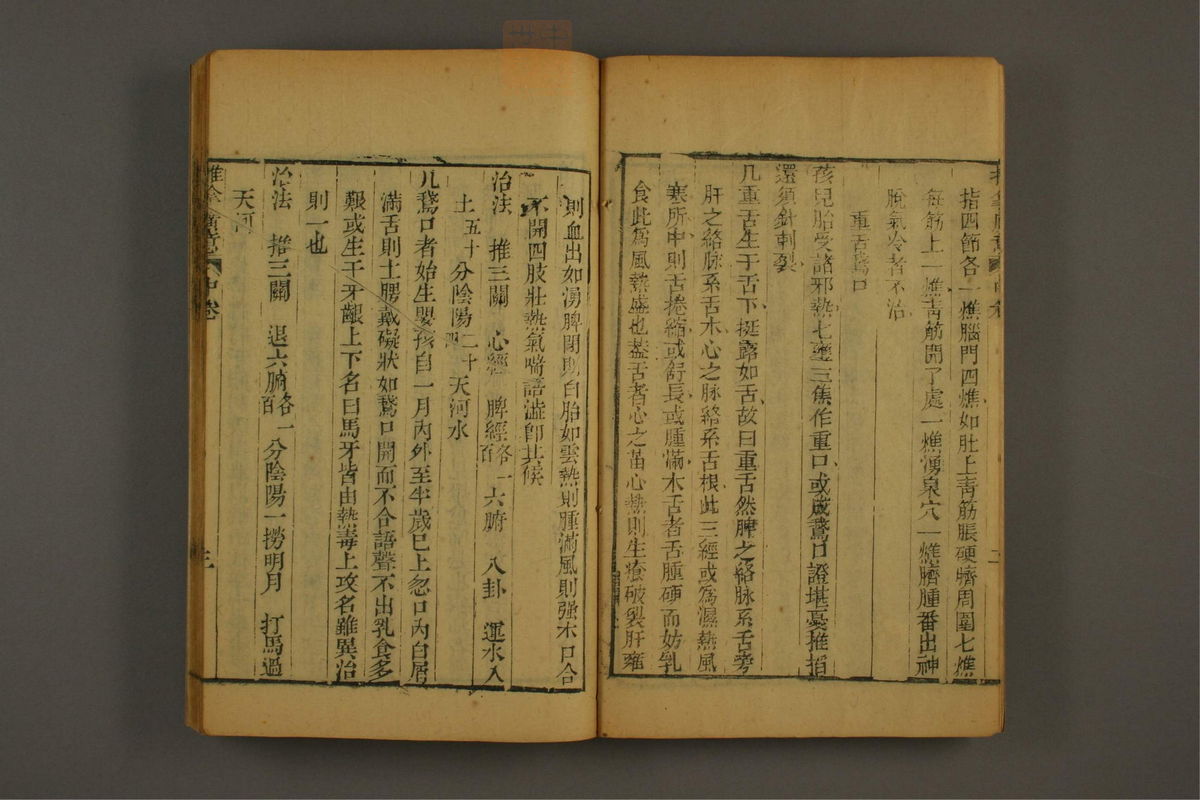 指四節各一燋腦門四燋如肚上青筋脹硬臍周圍七燋
每筋上一燋青筋開了處一燋湧泉穴一燋臍腫番出神
脫氣冷者不治
重舌鵞口
孩兒胎受諸邪熱七壅三焦作重口或成鵞口證堪憂推指
還須針刺裂
凡重舌生于舌下挺露如舌故曰重舌然脾之絡脉系舌旁
肝之絡脉系舌本心之脉絡系舌根此三經或為濕熱風
寒所中則舌捲縮或舒長或腫滿木舌者舌腫硬而妨乳
食此為風熱盛也盖舌者心之苗心熱則生瘡破裂肝雍
則血出如湧脾閉則白胎如雲熱則腫滿風則强木口合
不開四肢壯熱氣喘語澁即其候
治法 推三關 心經 脾經各一百 六腑 八卦 運水入
土五十 分陰陽二十 天河水
凡鵞口者始生嬰孩自一月內外至半歲已上忽口內白屑
滿舌則上腭戴礙狀如鵞口開而不合語聲不出乳食多
艱或生于牙齦上下名曰馬牙皆由熱毒上攻名雖異治
則一也
治法 推三關 退六腑各一百 分陰陽一撈明月 打馬過
天河
推拿廣意 中卷 三